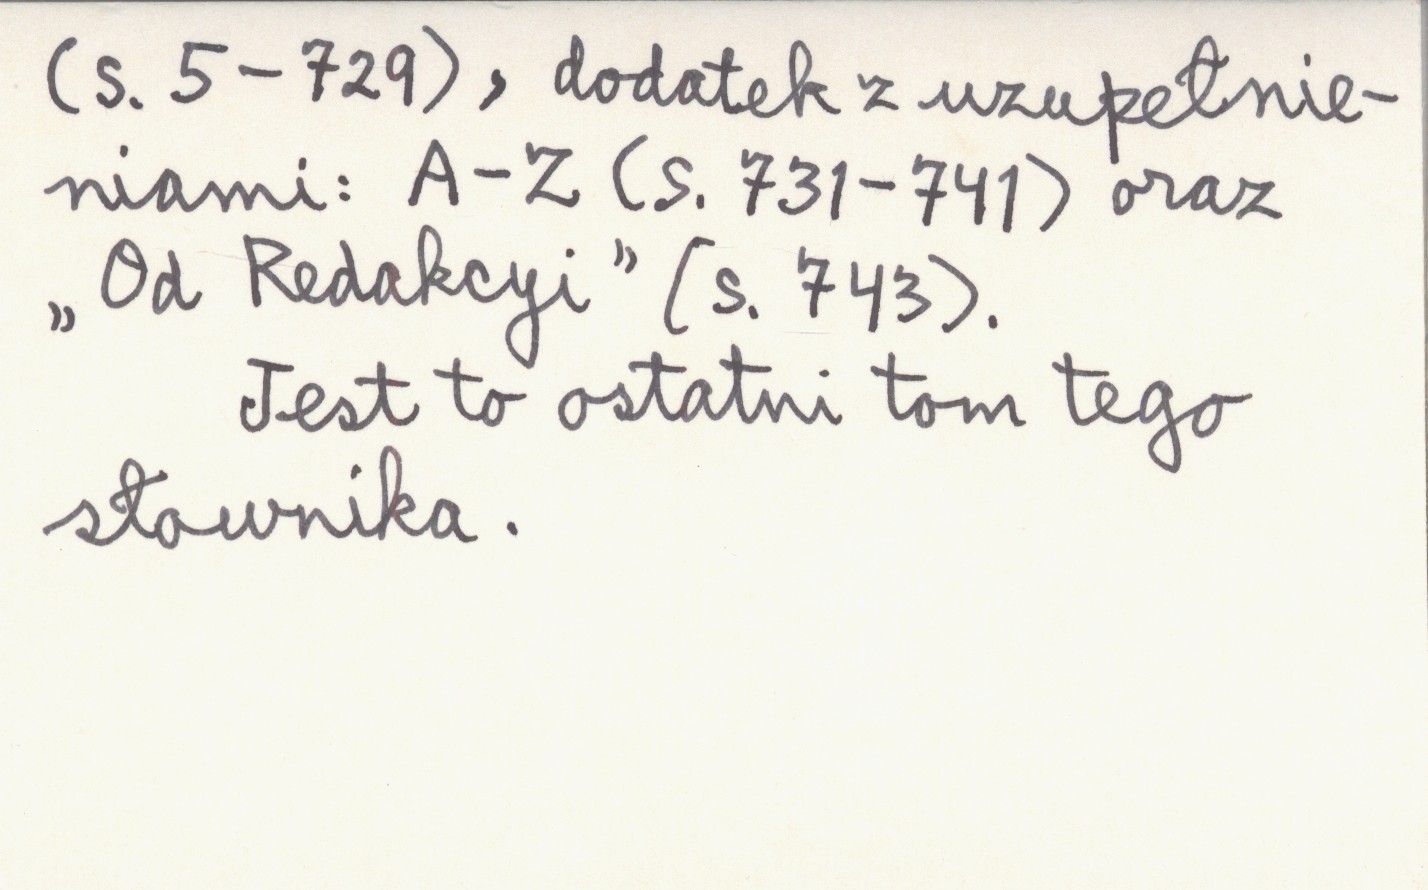 (s. 5-729), dodatek z uzupełnie-
niami: A-Z (s. 731-741) oraz
„Od Redakcyi” (s. 743).
Jest to ostatni tom tego
słownika.